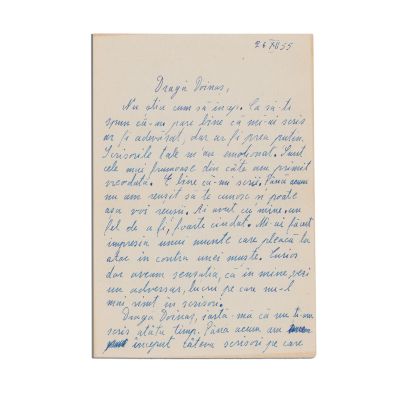 26 XII 55
Dragă Doinaș,
Nu știu cum să încep. Ca să-ți
spun că-mi pare bine că mi-ai scris
ar fi adevărat, dar ar fi prea puțin.
Scrisorile tale m'au emoționat. Sunt
cele mai frumoase din câte am primit
vreodată. E bine că-mi scrii. Până acum
nu am reușit să te cunosc și poate
așa voi reuși. Ai avut cu mine un
fel de a fi, foarte ciudat. Mi-ai făcut
impresia unui munte care pleacă la
atac în contra unei muște. Curios
dar aveam senzația, că în mine, vezi
un adversar, lucru pe care nu-l
mai simt în scrisori.
Dragă Doinaș, iartă-mă că nu ți-am
scris atâta timp. Până acum am
început câteva scrisori pe care